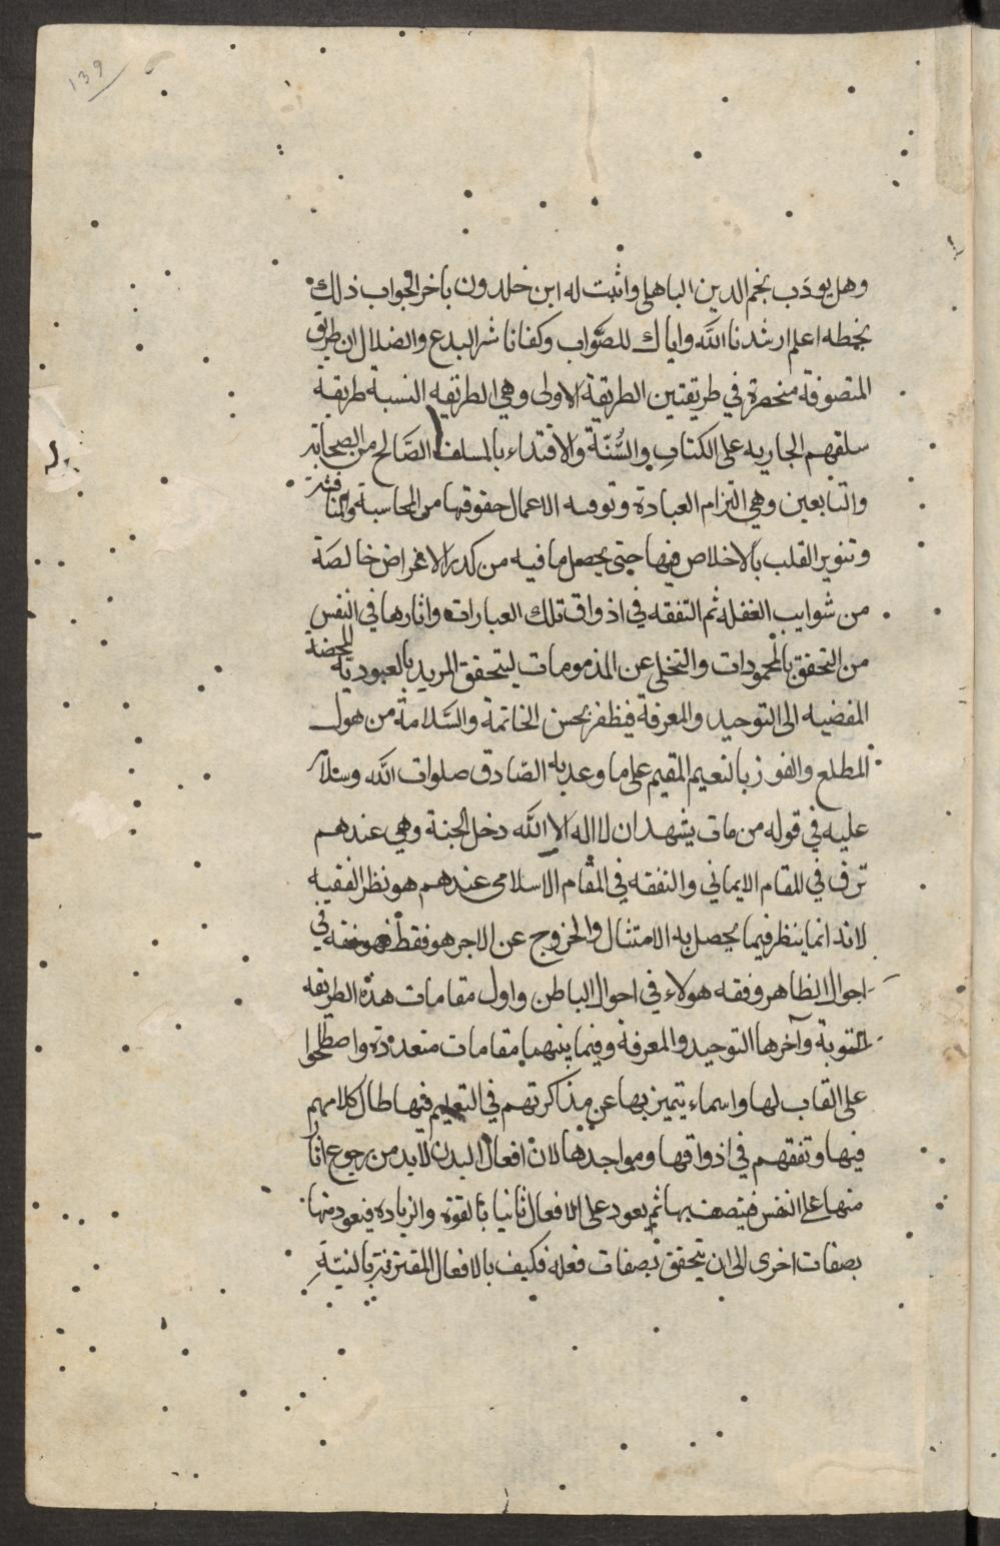 139
وهل يودب نجم الدين الباهلى واثبت له ابن خلدون باخر الجواب ذلك
بخطه اعلم ارشدنا الله واياك للصّواب وكفانا شر البدع والضلال ان طريق
المتصوفة منحصرة في طريقتين الطريقة الاولى وهي الطريقه النسبة طريقة
سلفهم الجاريه على الكتاب والسُّنّة والاقتداء بالسلف الصَّالح من الصحابة
والتابعين وهي التزام العبادة وتوفيه الاعمال حقوقها من المحاسبة والمناقشة
وتنوير القلب بالاخلاص فيها حتى يحصل ما فيه من كدر الاغراض خالصَة
من شوايب الغفله ثم التفقه في اذواق تلك العبارات واثارها في النفس
من التحقق بالمحمودات والتخلى عن المذمومات ليتحقق المريد بالعبودية المحضة
المفضيه الى التوحيد والمعرفة فيظفر بحسن الخاتمة والسَّلامة من هول
المطلع والفوز بالنعيم المقيم على ما وعد به الصَادق صلوات الله وسلامه
عليه في قوله من مات يشهد ان لا اله الا الله دخل الجنة وهي عندهم
ترق في المقام الايماني والتفقه في المقام الاسلامى عندهم هو نظر الفقيه
لانه انما ينظر فيما يحصل به الامتثال والخروج عن الاجر هو فقط فهو فقه في
احوال الظاهر وفقه هولاء في احوال الباطن واول مقامات هذه الطريقه
التوبة وآخرها التوحيد والمعرفة وفيما بينهما مقامات متعددة واصطلحوا
على القاب لها واسماء يتميز بها عن مذاكرتهم في التعليم فيها طال كلامهم
فيها وتفقهم في اذواقها ومواجدها لان افعال البدن لابد من رجوع اثار
منها على النفس فيتصف بها ثم يعود على الافعال ثانيا بالقوة والزياده فيعود منها
بصفات اخرى الى ان يتحقق بصفات فعله فكيف بالافعال المقترنة بالنيّةِ